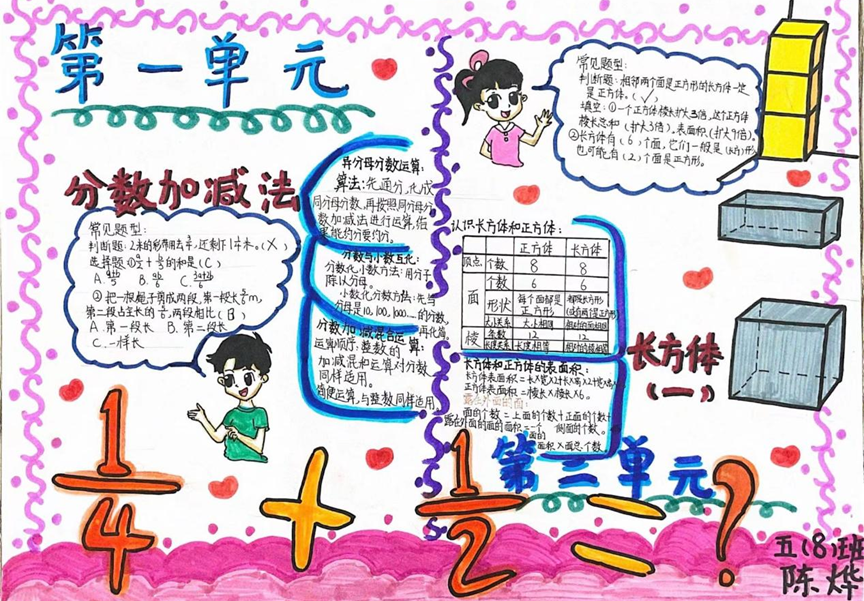 第一单元
分数加减法
常见题型:
选择题
A.
B.
C.
②把一根绳子剪成两段,第一段长
A.第一段长 B.第二段长
C.一样长
异分母分数运算:
算法:先通分,化成
同分母分数,再按照同分母分
数加减法进行运算,结
果能约分要约分。
分数与小数互化:
分数化小数方法:用分子
除以分母。
小数化分数方法:先写
分母是10,100,1000……的分数,
再化简。
分数加减混合运算:
运算顺序:整数的
加减混和运算对分数
同样适用。
简便运算,与整数同样适用
常见题型:
判断题:相邻两个面是正方形的长方体一定
是正方体。(✓)
填空:①一个正方体棱长扩大3倍,这个正方体
棱长总和(扩大3倍),表面积(扩大9倍)。
②长方体有(6)个面,它们一般是(长方)形
也可能有(2)个面是正方形。
认识长方体和正方体:
正方体 长方体
顶点 个数 8 8
面 个数 6 6
形状 每个面都是正方形
大小关系 大小相同
棱 条数 12 12
长度关系 长度相等
长方体和正方体的表面积:
长方体表面积=长×宽×2+长×高×2+宽×高×2
正方体表面积=棱长×棱长×6。
露在外面的面:
面的个数=上面的个数+正面的个数+
侧面的个数。
露在外面的面的面积=一个面的
面积×面总个数
长方体
(一)
第二单元
1/4 + 1/2 = ?
五(8)班
陈烨